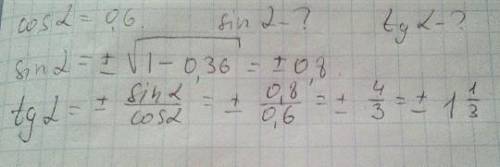 cos α = 0,6. sin α - ? tg α - ?
sin α = ± √1 - 0,36 = ± 0,8.
tg α = ± sin α / cos α = ± 0,8 / 0,6 = ± 4/3 = ± 1 1/3